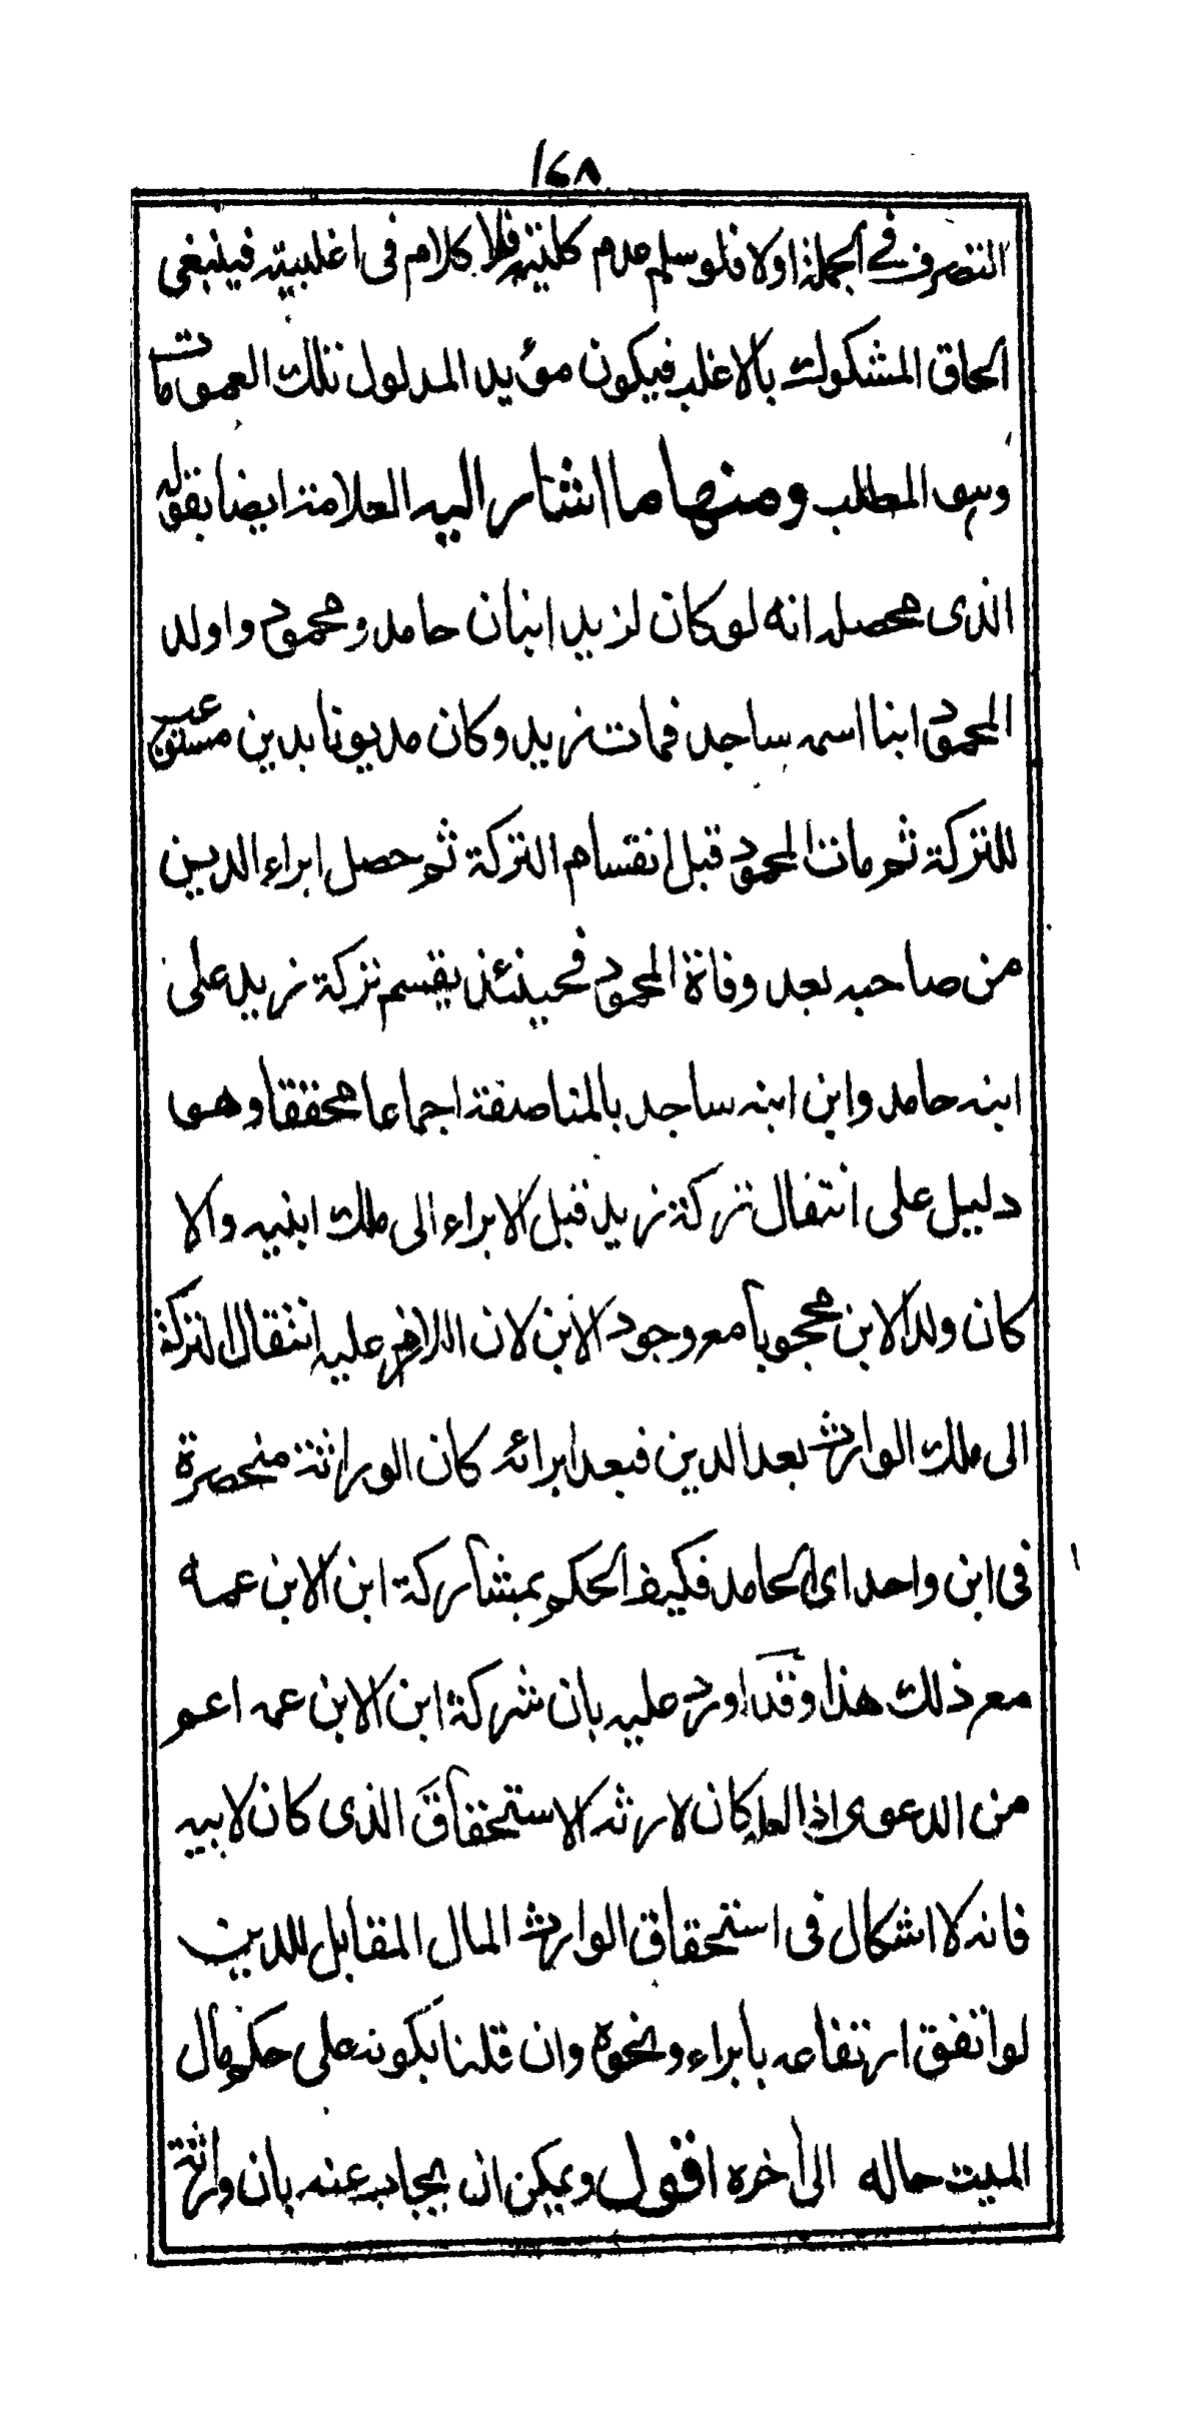 ١٤٨
التصرف في الجملة اولا فلو سلم عدم كليته فلا كلام فى اغلبيته فينبغى
الحاق المشكوك بالاغلب فيكون مؤيد المدلول تلك العمومات
وسوق المطلب ومنها ما اشار اليه العلامة ايضا بقوله
الذى محصله انه لو كان لزيد ابنان حامد ومحمود واولد
المحمود ابنا اسمه ساجد فمات زيد وكان مديونا بدين مستوعب
للتركة ثم مات المحمود قبل انقسام التركة ثم حصل ابراء الدين
من صاحبه بعد وفاة المحمود فحينئذ يقسم تركة زيد على
ابنه حامد وابن ابنه ساجد بالمناصفة اجماعا محققا وهو
دليل على انتقال تركة زيد قبل الابراء الى ملك ابنيه والا
كان ولد الابن محجوبا مع وجود الابن لان اللازم عليه انتقال التركة
الى ملك الوارث بعد الدين فبعد ابرائه كان الوراثة منحصرة
فى ابن واحد اى الحامد فكيف الحكم بمشاركة ابن الابن عمه
مع ذلك هذا وقد اورد عليه بان شركة ابن الابن عمه اعم
من الدعوى اذ لعله كان لارثه الاستحقاق الذى كان لابيه
فانه لا اشكال فى استحقاق الوارث المال المقابل للدين
لو اتفق ارتفاعه بابراء ونحوه وان قلنا بكونه على حكم مال
الميت حاله الى أخره اقول ويمكن ان يجاب عنه بان وراثة